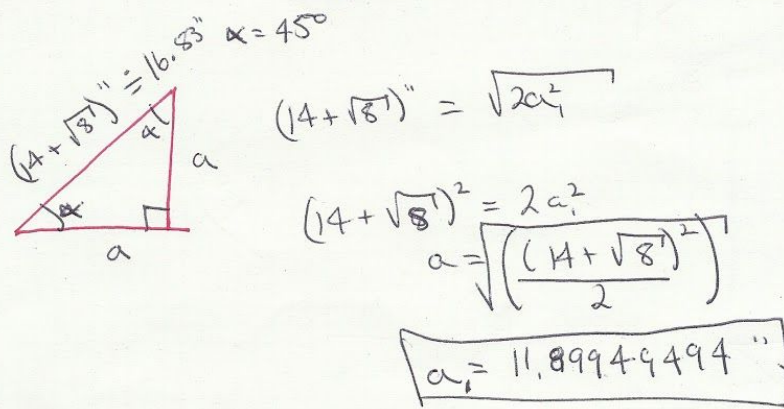 (14 + √8)" ≐ 16.83" α = 45°
α
a
α
a
(14 + √8)" = √2a₁²
(14 + √8)² = 2a₁²
a = √(((14 + √8)²)/2)
a₁ = 11.89949494"